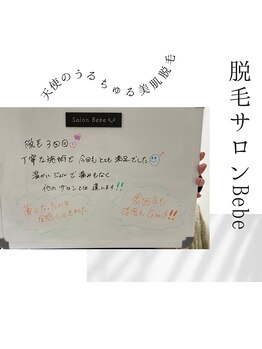 天使のうるちゅる美肌脱毛
脱毛サロンBebe
Salon Bebe
脱毛3回目
丁寧な施術で今回もとても満足でした
温かいジェルで痛みもなく
他のサロンとは違います!!
実感してきました
雰囲気も
接客もGood!!